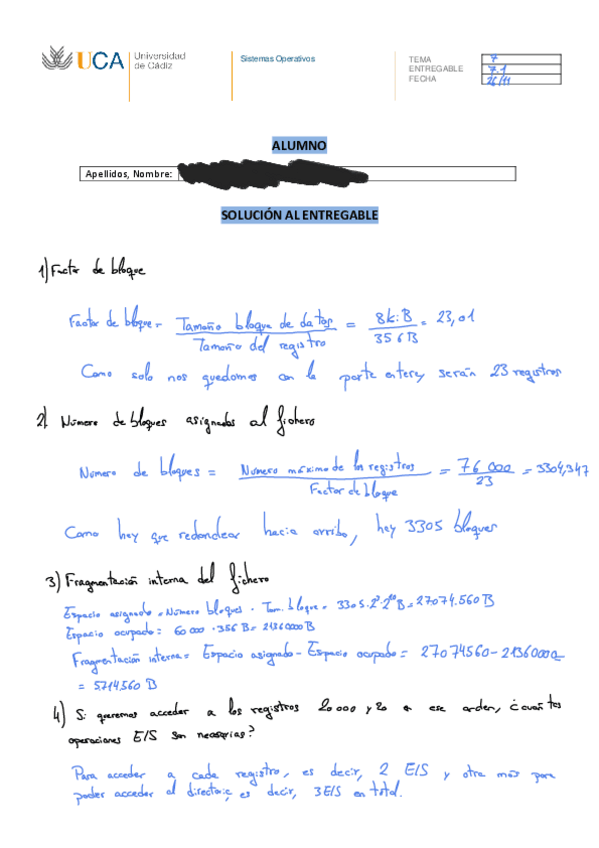 UCA Universidad de Cádiz
Sistemas Operativos
TEMA 7
ENTREGABLE 7.1
FECHA 26/11
ALUMNO
Apellidos, Nombre:
SOLUCIÓN AL ENTREGABLE
1) Factor de bloque
Factor de bloque = Tamaño bloque de datos / Tamaño del registro = 8KiB / 356B = 23,01
Como solo nos quedamos con la parte entera, serán 23 registros
2) Número de bloques asignados al fichero
Número de bloques = Número máximo de los registros / Factor de bloque = 76 000 / 23 = 3304,347
Como hay que redondear hacia arriba, hay 3305 bloques
3) Fragmentación interna del fichero
Espacio asignado = Número bloques · Tam. bloque = 3305 · 2³ · 2¹⁰ B = 27074.560 B
Espacio ocupado = 60 000 · 356 B = 21360000 B
Fragmentación interna = Espacio asignado - Espacio ocupado = 27074560 - 21360000 =
= 5714.560 B
4) Si queremos acceder a los registros 20 000 y 20 en ese orden, ¿cuántas
operaciones E/S son necesarias?
Para acceder a cada registro, es decir, 2 E/S y otra más para
poder acceder al directorio, es decir, 3 E/S en total.